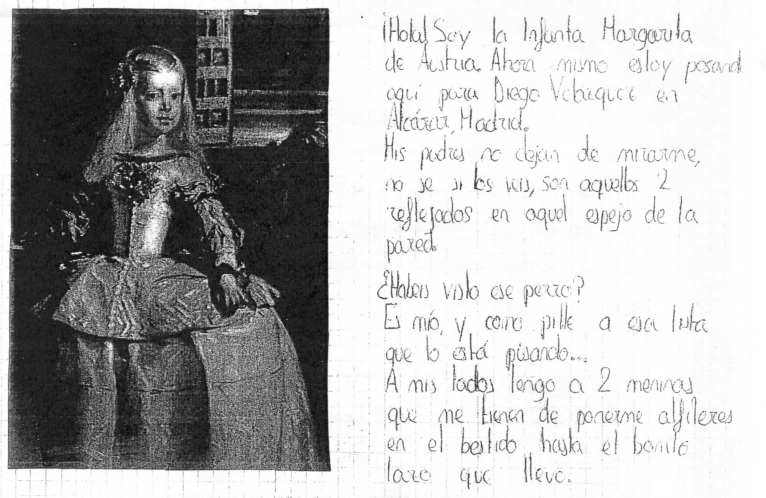 ¡Hola! Soy la Infanta Margarita
de Austria. Ahora mismo estoy posand
aquí para Diego Velazquez en
Alcázar, Madrid.
Mis padres no dejan de mirarme,
no se si los veis, son aquellos 2
reflejados en aquel espejo de la
pared.
¿Habeis visto ese perro?
Es mío, y como pille a esa
que lo está pisando...
A mis lados tengo a 2 meninas
que me tienen de ponerme alfileres
en el bestido hasta el bonito
lazo que llevo.